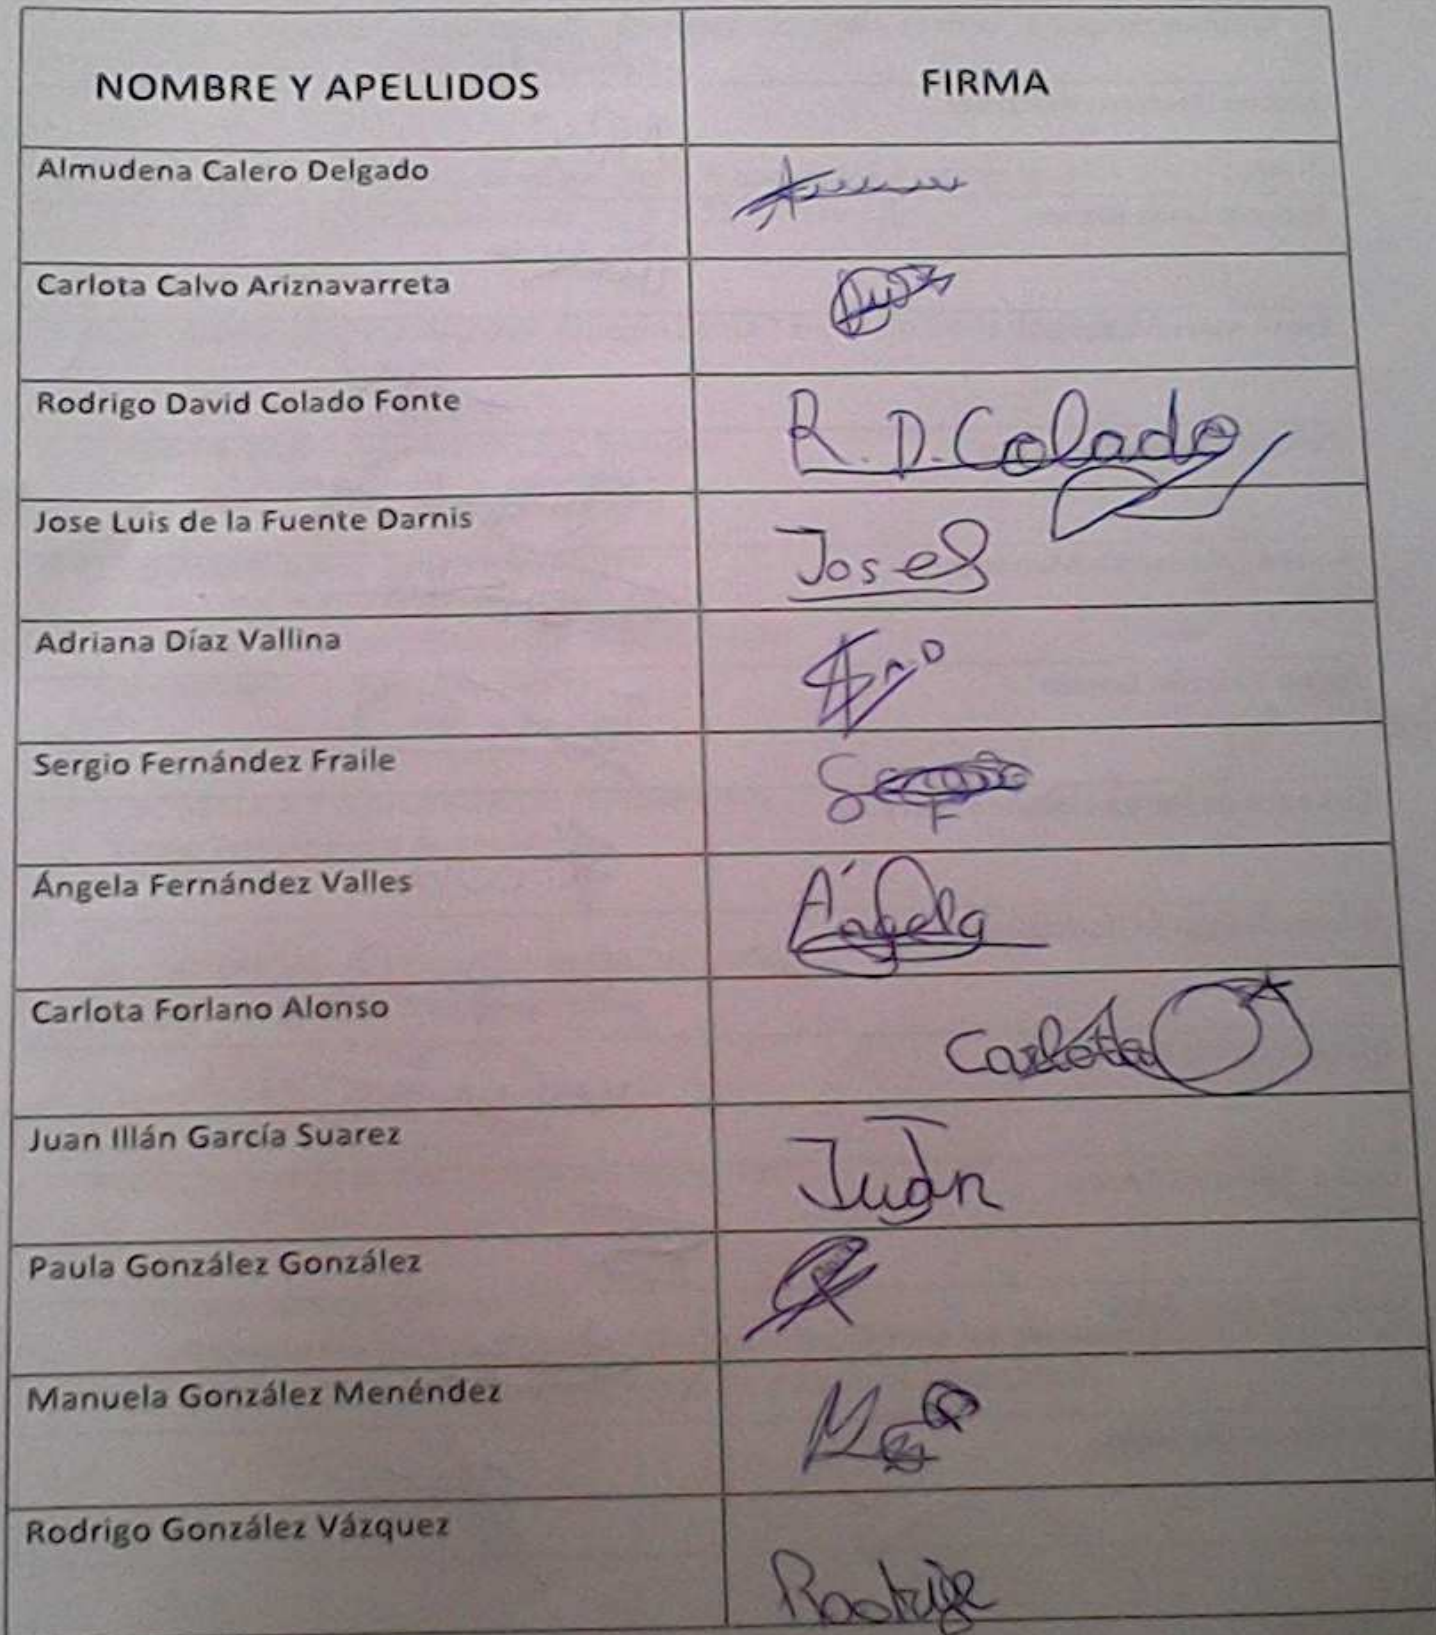 NOMBRE Y APELLIDOS FIRMA
Almudena Calero Delgado
Carlota Calvo Ariznavarreta
Rodrigo David Colado Fonte R. D. Colado
Jose Luis de la Fuente Darnis Josel
Adriana Díaz Vallina
Sergio Fernández Fraile
Ángela Fernández Valles Ángela
Carlota Forlano Alonso Carlota
Juan Illán García Suarez Juan
Paula González González
Manuela González Menéndez
Rodrigo González Vázquez Rodrigo